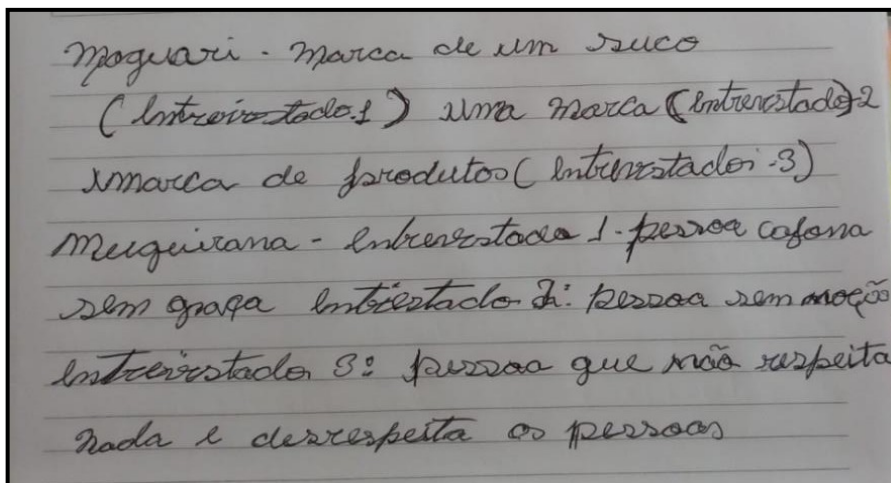 Maguari - Marca de um suco
(Entreivistado.1) uma marca (Entrevistado)-2
marca de produtos (Entrevistador-3)
Muquirana - Entrevistado 1 - pessoa cafona
sem graça Entriestado 2: pessoa sem noção
Entreivistado 3: pessoa que não respeita
nada e desrespeita as pessoas